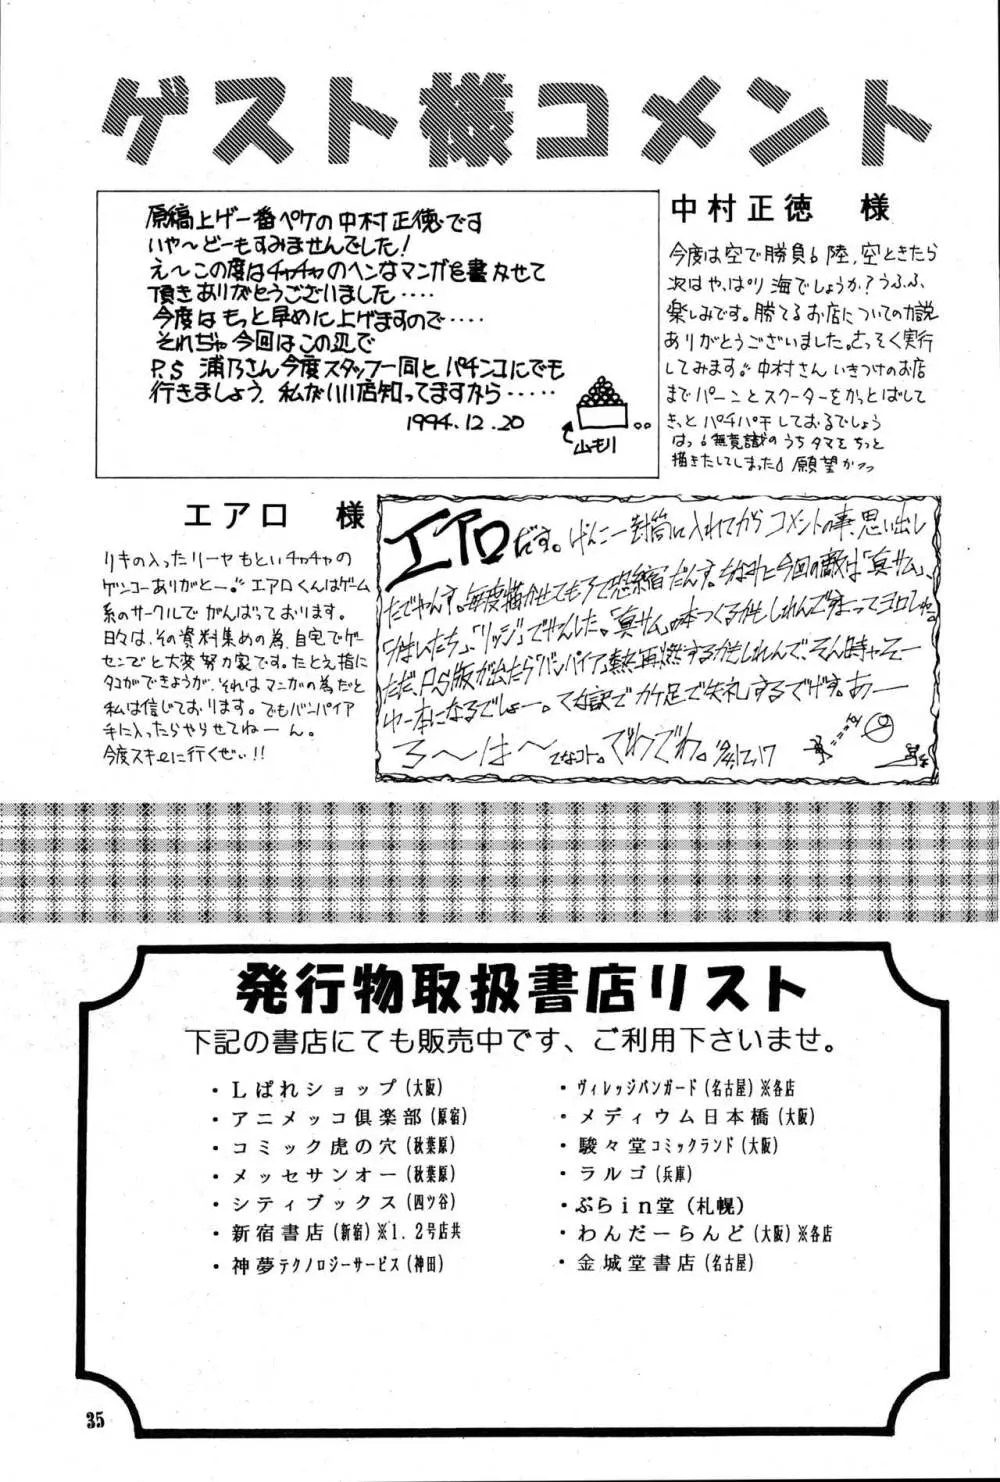 ゲスト様コメント
原稿上げ一番ペケの中村正徳です
いや〜どーもすみませんでした!
え〜この度はチャチャのヘンなマンガを書かせて
頂きありがとうございました‥‥
今度はもっと早めに上げますので‥‥
それぢゃ今回はこの辺で
P.S 浦乃さん今度スタッフ一同とパチンコにでも
行きましょう。私がいい店知ってますから‥‥‥
1994.12.20
山モリ
中村正徳 様
今度は空で勝負♂ 陸,空ときたら
次はやっぱり海でしょうか?うふふ、
楽しみです。勝てるお店についての力説
ありがとうございました。さっそく実行
してみます。中村さんいきつけのお店
までパーンとスクーターをかっとばして
きっとパチパチしておるでしょう
はっ♂無意識のうちタマをちっと
描きたしてしまった♂願望かっっ
エアロ 様
リキの入ったリーヤもといチャチャの
ゲンコーありがとー。エアロくんはゲーム
系のサークルでがんばっております。
日々は、その資料集めの為、自宅でゲー
センでと大変努力家です。たとえ指に
タコができょうが、それはマンガの為だと
私は信じております。でもバンパイア
手に入ったらやらせてねーん。
今度スキーに行くぜい!!
エアロだす。げんこー封筒に入れてからコメントの事、思い出し
たでやんす。毎度描かせてもろて恐縮だんす。ちなみに今回の敵は「真サム」、
ただ、P.S版が出たら「バンパイア」熱再燃するかもしれんで、そん時ゃそー
ろ〜は〜 てなコト。でわでわ。
発行物取扱書店リスト
下記の書店にても販売中です、ご利用下さいませ。
・しぱれショップ(大阪)
・アニメッコ倶楽部(原宿)
・コミック虎の穴(秋葉原)
・メッセサンオー(秋葉原)
・シティブックス(四ツ谷)
・新宿書店(新宿)※1.2号店共
・神夢テクノロジーサービス(神田)
・ヴィレッジバンガード(名古屋)※各店
・メディウム日本橋(大阪)
・駿々堂コミックランド(大阪)
・ラルゴ(兵庫)
・ぶらin堂(札幌)
・わんだーらんど(大阪)※各店
・金城堂書店(名古屋)
35